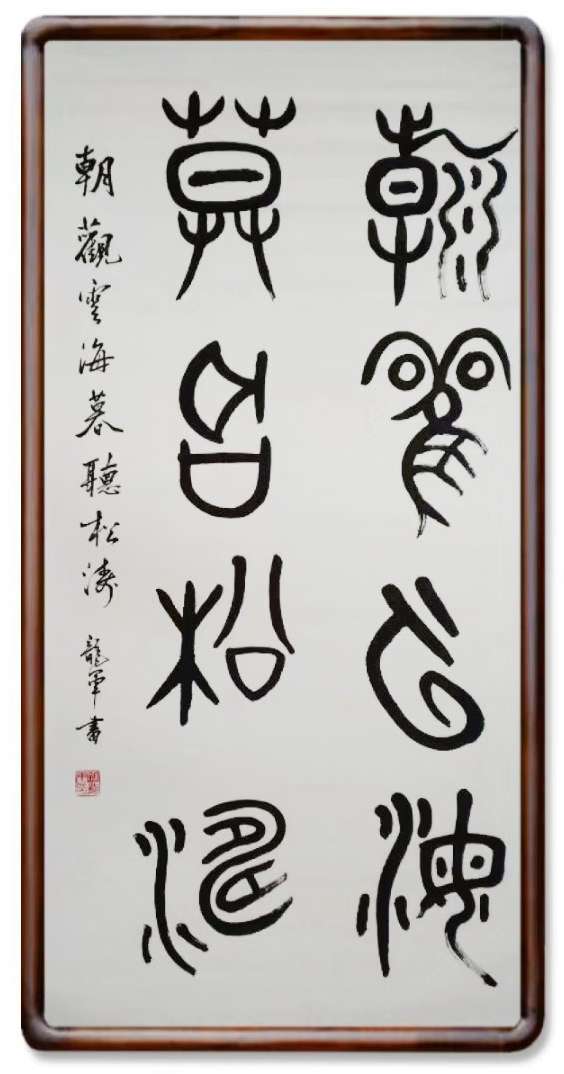 朝觀雲海
暮聽松濤
朝觀雲海暮聽松濤 龍軍書